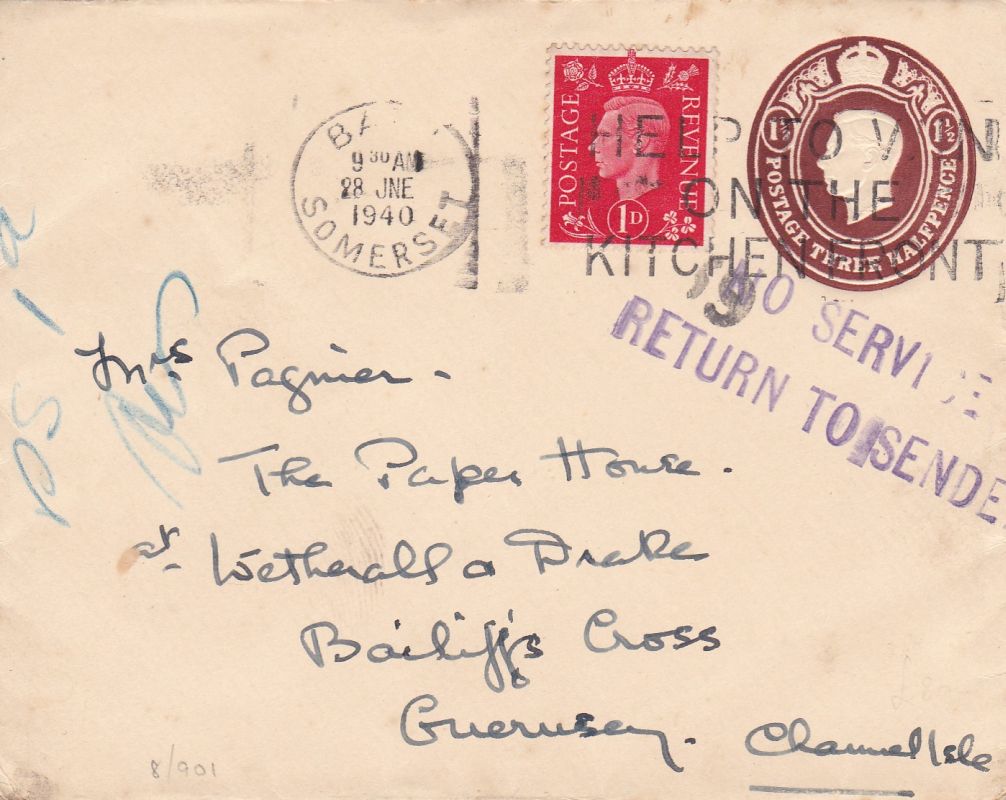 9 30 AM
28 JNE
1940
SOMERSET
POSTAGE REVENUE
1D
1½ 1½
POSTAGE THREE HALFPENCE
HELP TO WIN
ON THE
KITCHEN FRONT
NO SERVICE
RETURN TO SENDE
Mrs Pagnier.
The Paper House.
at Wetherall & Drake
Bailiff's Cross
Guernsey. Channel Isle
8/901